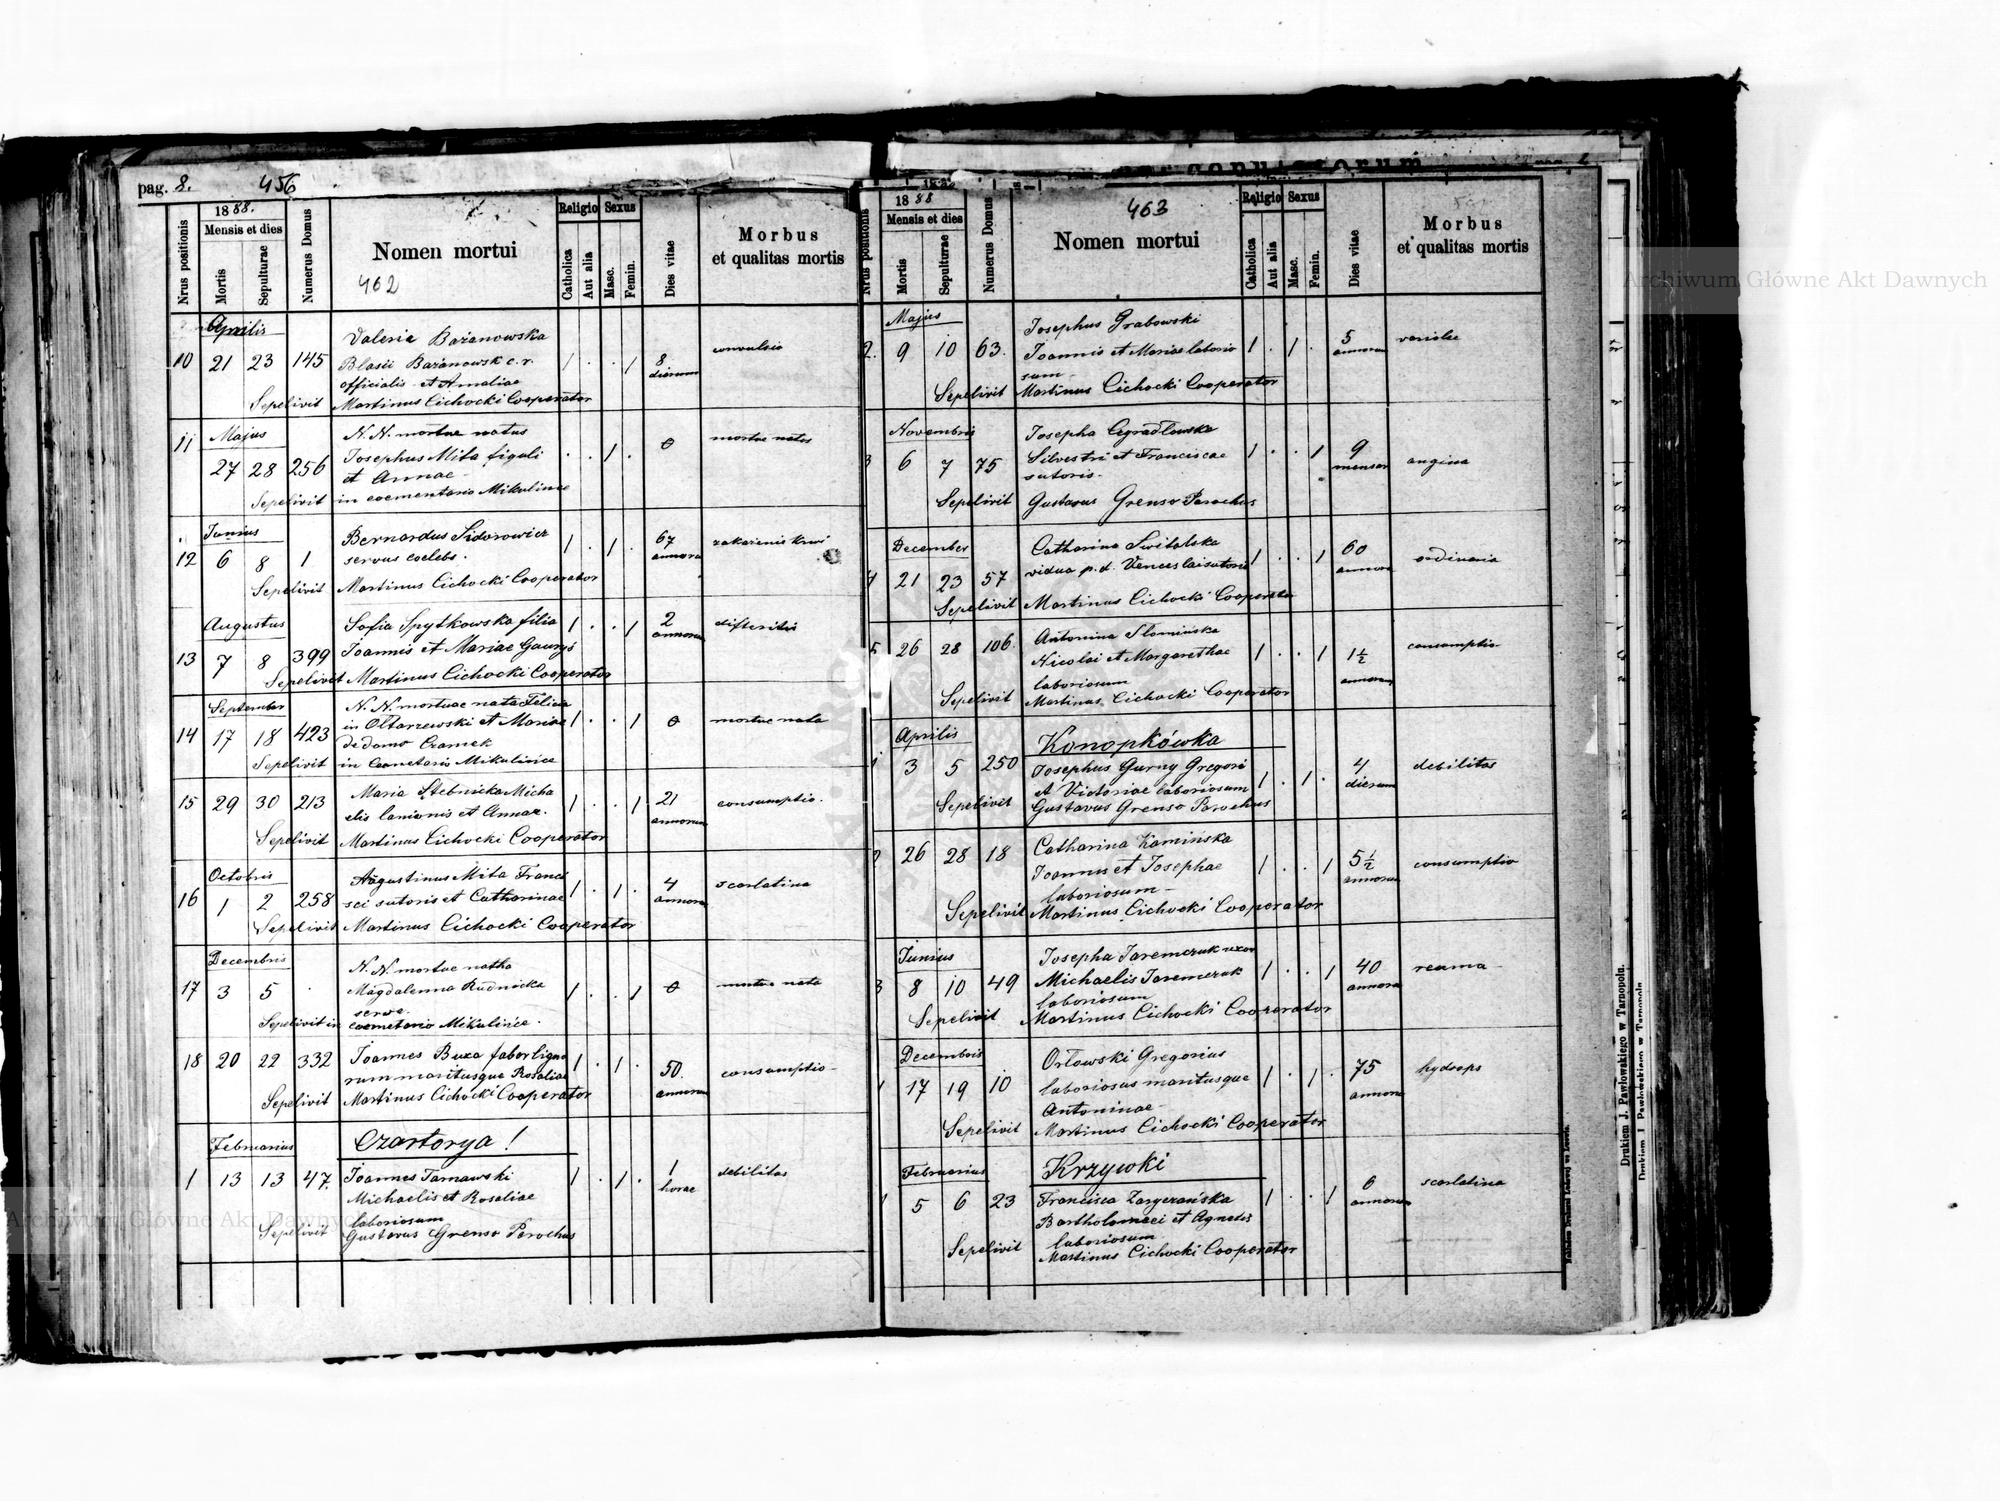 pag. 8. 456
1888.
Mensis et dies
Nrus positionis
Mortis
Sepulturae
Numerus Domus
Nomen mortui
462
Religio
Catholica
Aut alia
Sexus
Masc.
Femin.
Dies vitae
Morbus
et qualitas mortis
Aprilis
Valeria Bażanowska
10 21 23 145 Blasii Bażanowsk c. r. / . . / 8 dierum convulsio
officialis et Amaliae
Sepelivit Martinus Cichocki Cooperator
11 Majus N. N. mortue natus
27 28 256 Josephus Mita figuli . . / . 0 mortue natus
et Annae
Sepelivit in coementario Mikulince
Junius
Bernardus Sidorowicz
12 6 8 1 servus coelebs. / . / . 67 annora zakażenie krwi
Sepelivit Martinus Cichocki Cooperator
Augustus
Sofia Spytkowska filia / . . / 2 annorum difteritis
13 7 8 399 Joannis et Mariae Gaurys
Sepelivit Martinus Cichocki Cooperator
September
N. N. mortuae nata Felicia
14 17 18 423 in Oltarzewski et Mariae / . . / 0 mortue nata
de domo Cramek
Sepelivit in Cemetario Mikulince
15 29 30 213 Maria Stebnicka Micha / . . / 21 annorum consumptio.
elis lanionis et Annae.
Sepelivit Martinus Cichocki Cooperator
Octobris
Augustinus Mita Franci
16 1 2 258 sci sutoris et Catharinae / . / . 4 annora scarlatina
Sepelivit Martinus Cichocki Cooperator
Decembris
N. N. mortue natha
17 3 5 . Magdalenna Rudnicka / . . / 0 mortue nata
serva.
Sepelivit in coemetario Mikulince.
18 20 22 332 Joannes Buza faber ligna / . / . 50. annorum consumptio
rum maritusque Rosaliae
Sepelivit Martinus Cichocki Cooperator
Czartorya!
Februarius
1 13 13 47. Joannes Tarnawski / . / . 1 horae debilitas
Michaelis et Rosaliae
laboriosum
Sepelivit Gustavus Grenso Parochus
1888
463
Mensis et dies
Nrus positionis
Mortis
Sepulturae
Numerus Domus
Nomen mortui
Religio
Catholica
Aut alia
Sexus
Masc.
Femin.
Dies vitae
Morbus
et qualitas mortis
Majus
Josephus Grabowski
2. 9 10 63. Joannis et Mariae laborio / . / . 5 annorum variolae
sum
Sepelivit Martinus Cichocki Cooperator
Novembris
Josepha
3 6 7 75 Silvestri et Franciscae / . . / 9 mensor angina
sutoris.
Sepelivit Gustavus Grenso Parochus
December
Catharina Switalska
4 21 23 57 vidua p. d. Venceslai sutoris / . . / 60 annora ordinaria
Sepelivit Martinus Cichocki Cooperator
5 26 28 106. Antonina Słomińska
Nicolai et Margarethae / . . / 1½ annorum consumptio
laboriosum
Sepelivit Martinus Cichocki Cooperator
Aprilis
Konopkówka
1 3 5 250 Josephus Gurny Gregori / . / . 4 dierum debilitas
et Victoriae laboriosum
Sepelivit Gustavus Grenso Parochus
2 26 28 18 Catharina Kamińska
Joannis et Josephae / . . / 5½ annorum consumptio
laboriosum
Sepelivit Martinus Cichocki Cooperator
Junius
Josepha Jaremczuk uxor
3 8 10 49 Michaelis Jaremczuk / . . / 40 annora reuma
laboriosum
Sepelivit Martinus Cichocki Cooperator
Decembris
Orłowski Gregorius
17 19 10 laboriosus maritusque / . / . 75 annora hydrops
Antoninae
Sepelivit Martinus Cichocki Cooperator
Februarius
Krzywki
1 5 6 23 Francisca / . . / 6 annorum scarlatina
Bartholomaei et Agnetis
laboriosum
Sepelivit Martinus Cichocki Cooperator
Drukiem J. Pawłowskiego w Tarnopolu.
Drukiem J. Pawłowskiego w Tarnopolu.
Archiwum Główne Akt Dawnych
Archiwum Główne Akt Dawnych